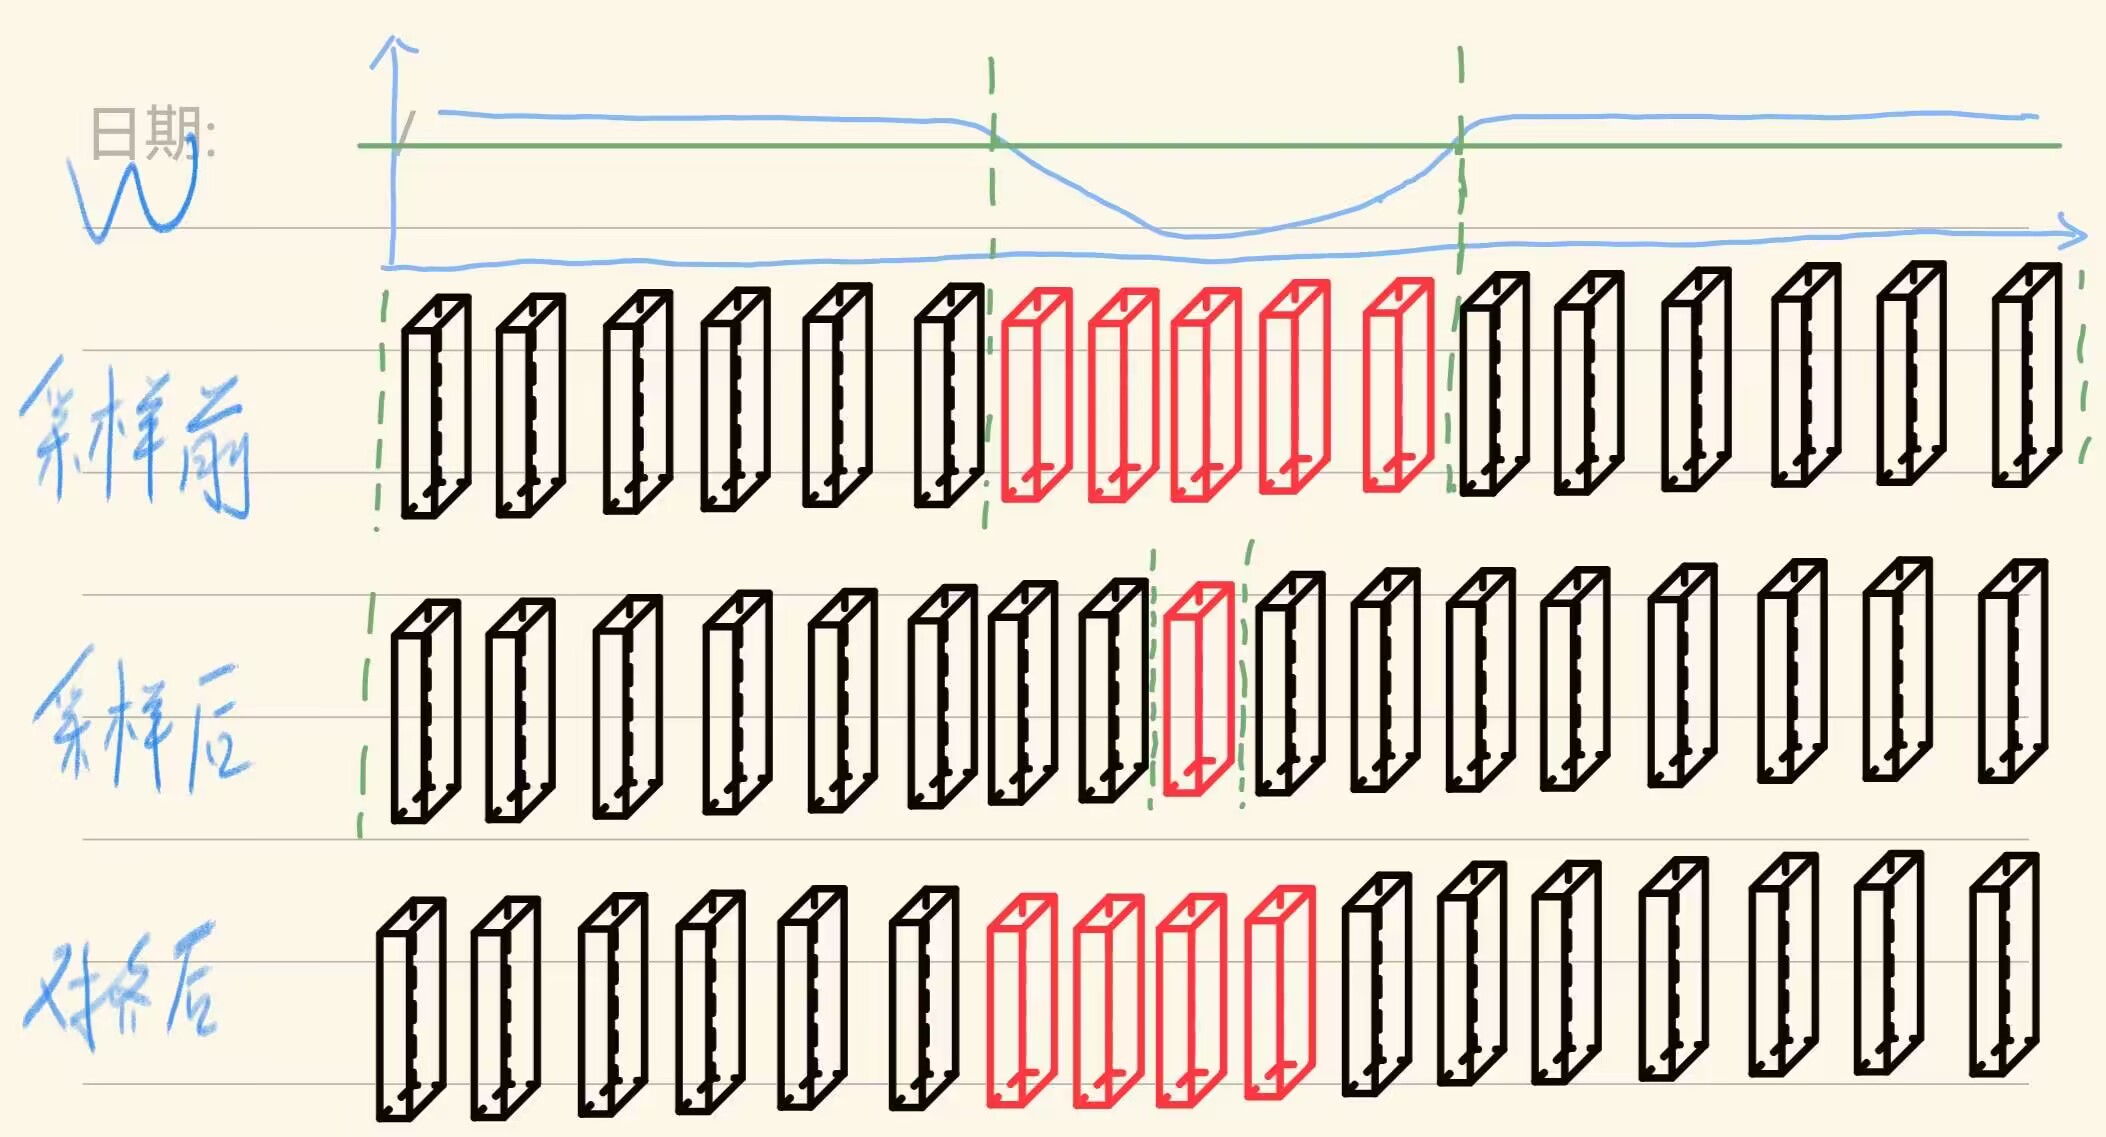 日期:
W
采样前
采样后
对齐后